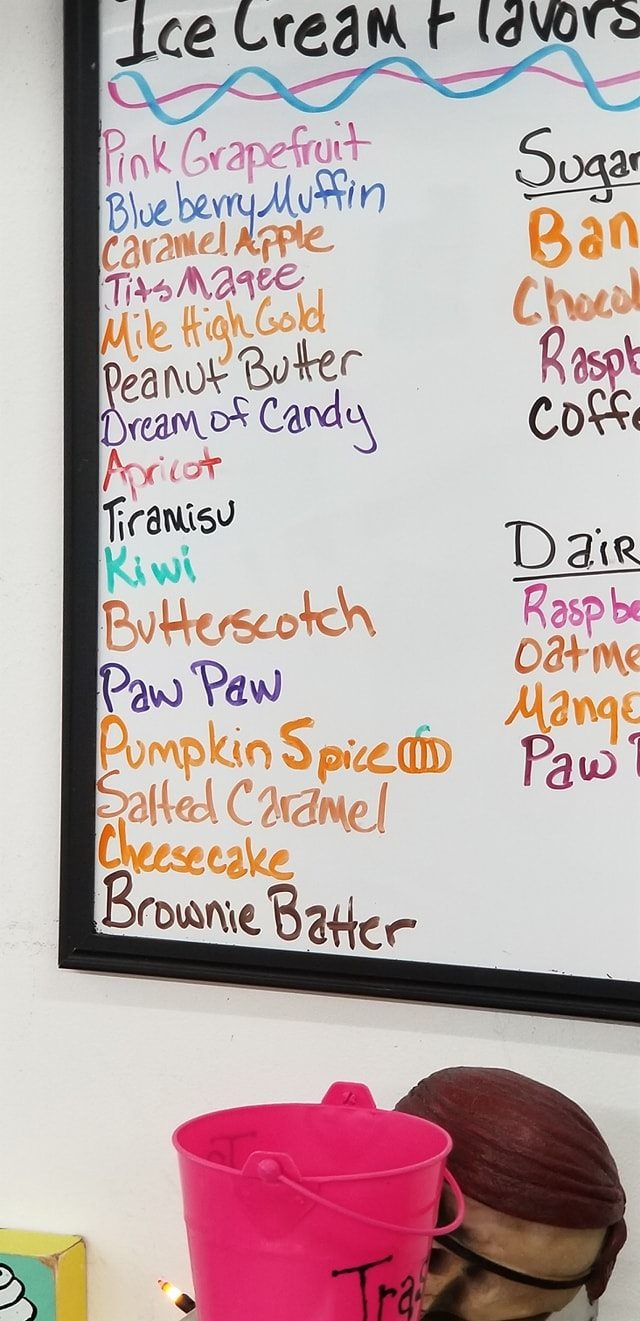 Ice Cream Flavors
Pink Grapefruit
Blueberry Muffin
Caramel Apple
Tits Magee
Mile High Gold
Peanut Butter
Dream of Candy
Apricot
Tiramisu
Kiwi
Butterscotch
Paw Paw
Pumpkin Spice
Salted Caramel
Cheesecake
Brownie Batter
Sugar
Ban
Chocol
Raspb
Coffe
Dair
Raspbe
Oatme
Mango
Paw P
Tras